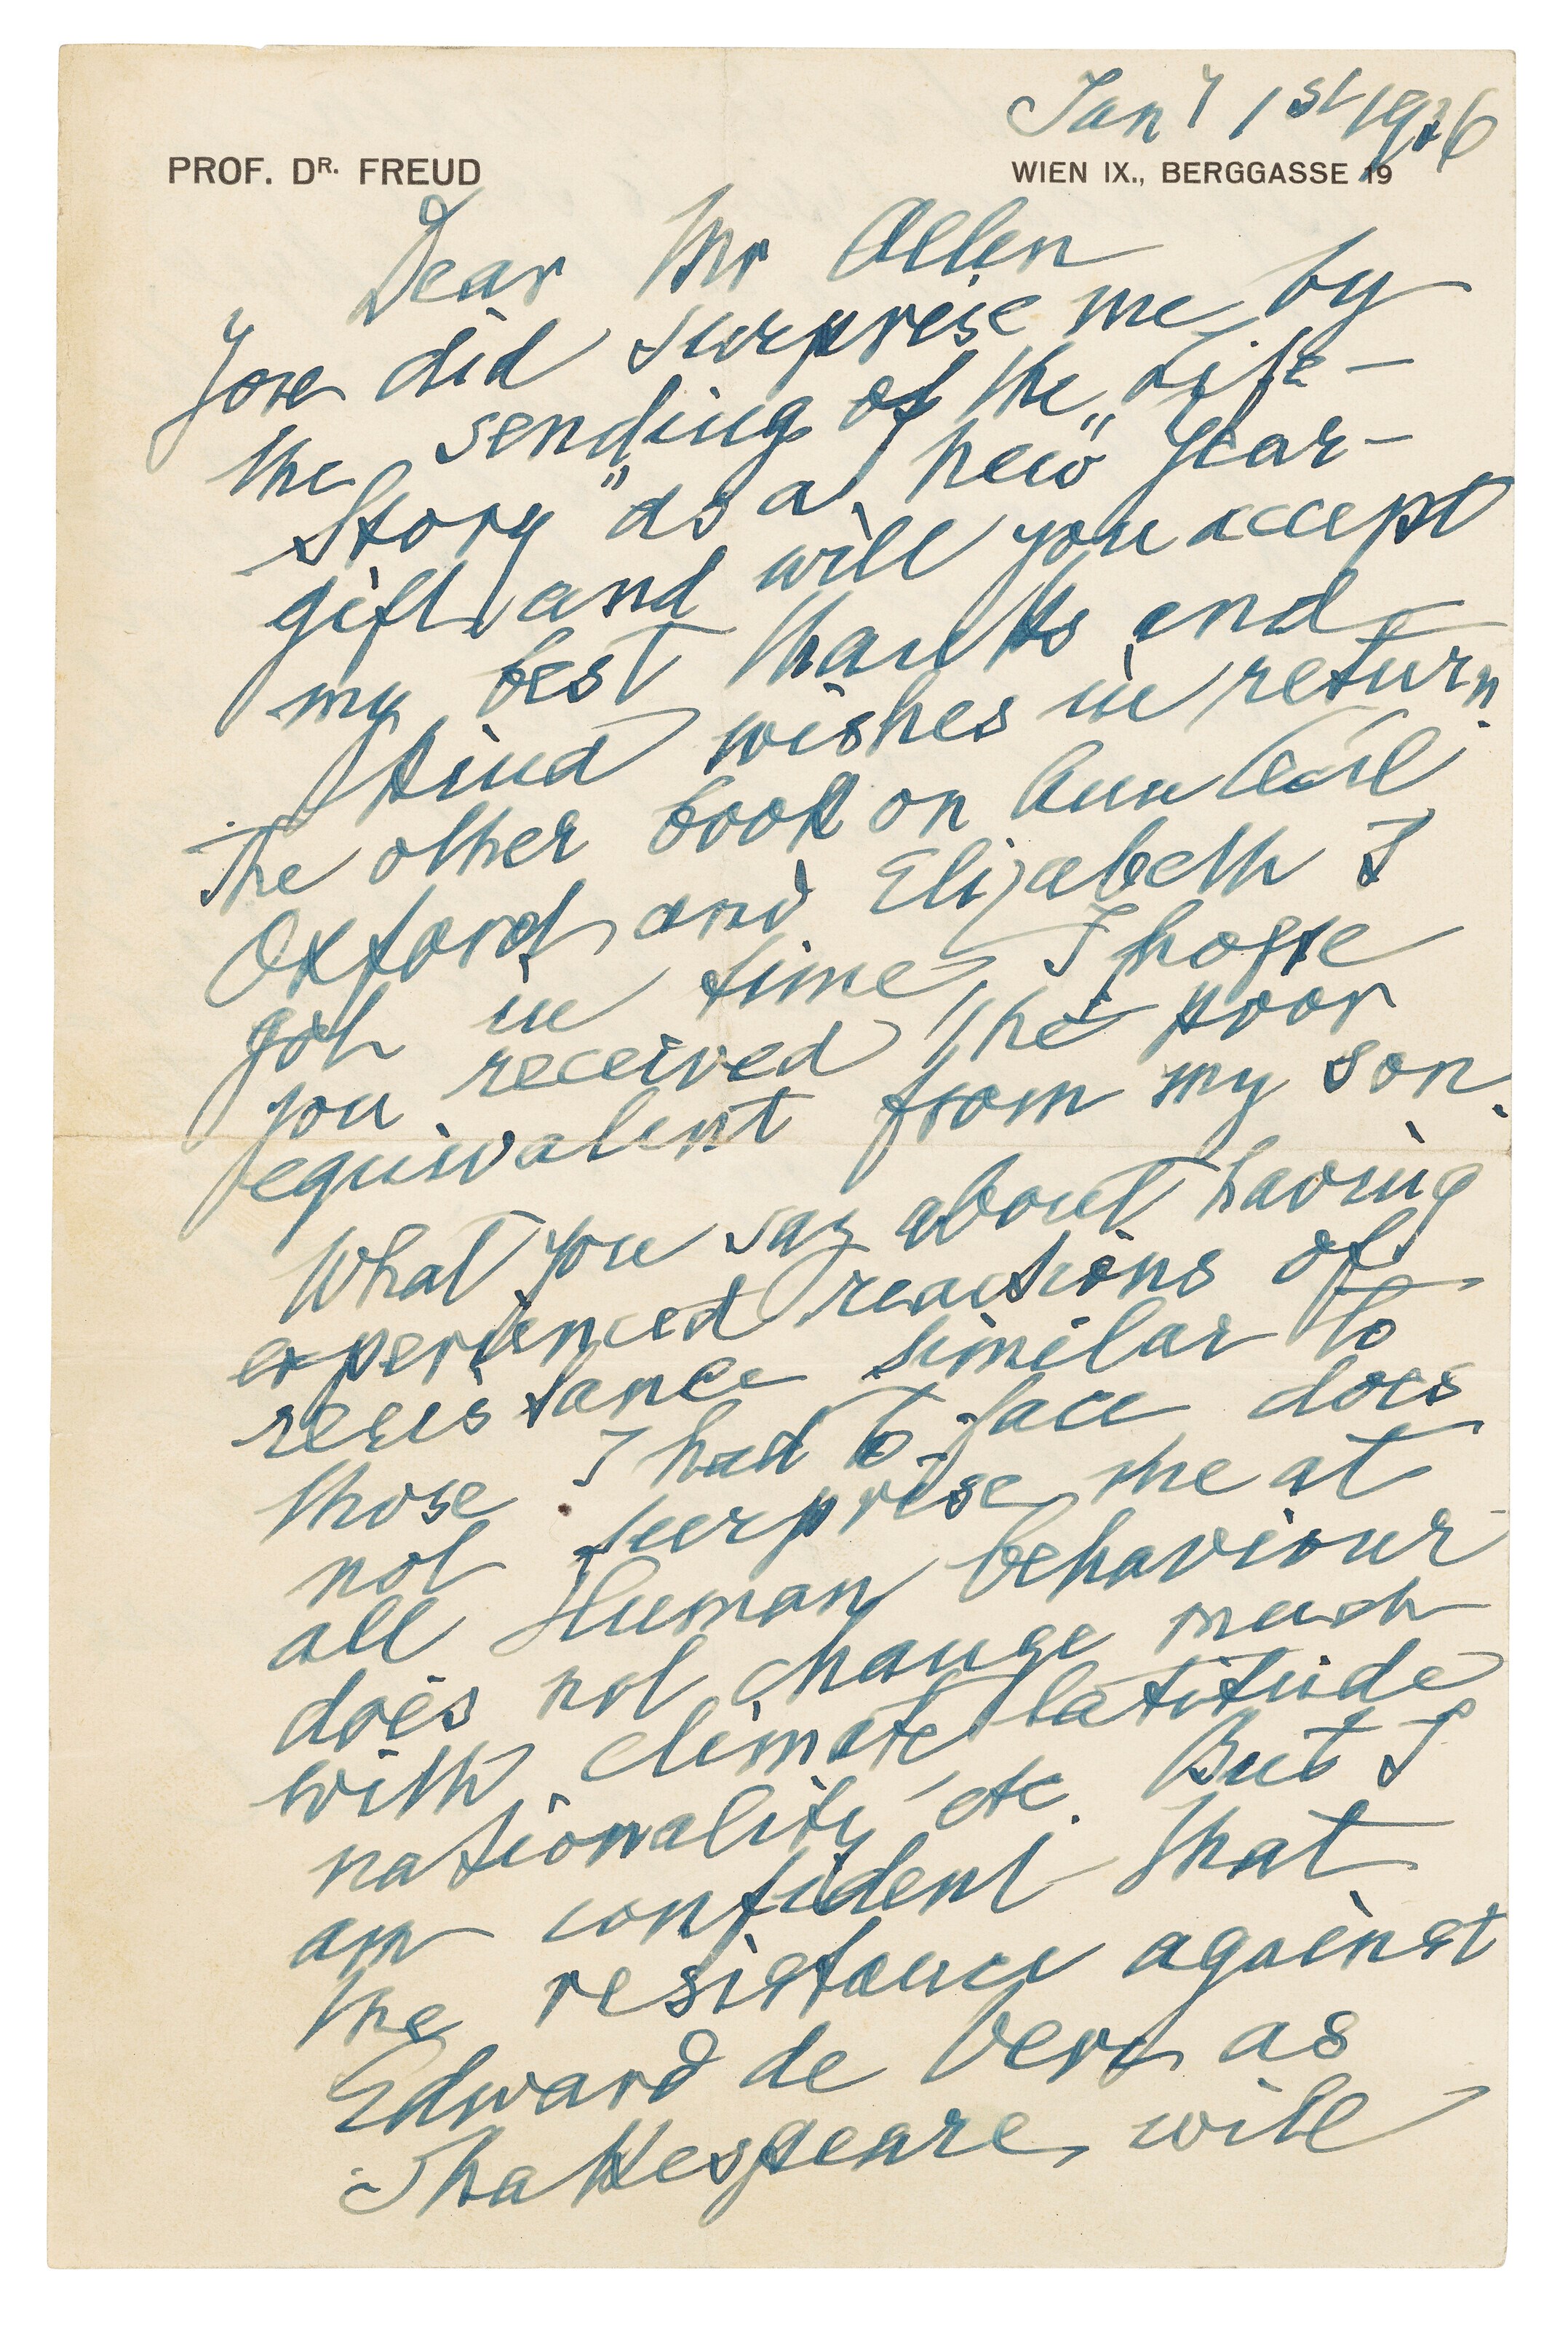 Jany 1st 1936
PROF. DR. FREUD
WIEN IX., BERGGASSE 19
Dear Mr Allen
You did surprise me by
the sending of the „Life-
Story" as a „new" Year-
gift and will you accept
my best thanks and
kind wishes in return.
The other book on
Oxford and Elizabeth I
got in time, I hope
you received the poor
equivalent from my son.
What you say about having
experienced reactions of
resistance similar to
those I had to face does
not surprise me at
all Human behaviour
does not change much
with climate latitude
nationality etc. But I
am confident that
the resistance against
Edward de Vere as
Shakespeare will